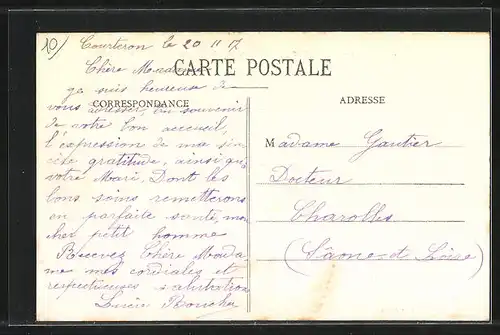 10) Courteron le 20 11 17
Chère Madame
CARTE POSTALE
ça suis heureuse de
CORRESPONDANCE
vous adresser, en souvenir
de votre bon accueil,
l'expression de ma sin-
cère gratitude, ainsi qu'à
votre Mari, Dont les
bons soins remetterons
en parfaite santé, mon
cher petit homme
Recevez Chère Mada
me mes cordiales et
respectueuses salutations
Lucie Boucher
ADRESSE
Madame Gautier
Docteur
Charolles
(Sâone-et Loire)